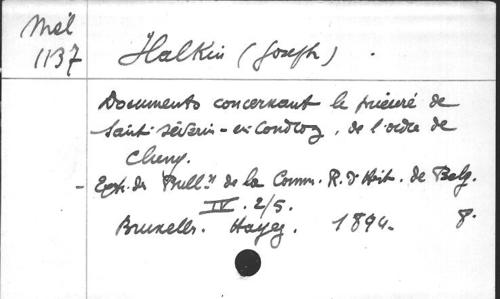 Mél
1137
Halkin (Joseph).
Documents concernant le prieuré de
Saint-Séverin-en-Condroz, de l'ordre de
Cluny.
- Extr. du Bull.n de la Comm. R. d'Hist. de Belg.
IV. 2/5.
Bruxelles. Hayez. 1894. 8.